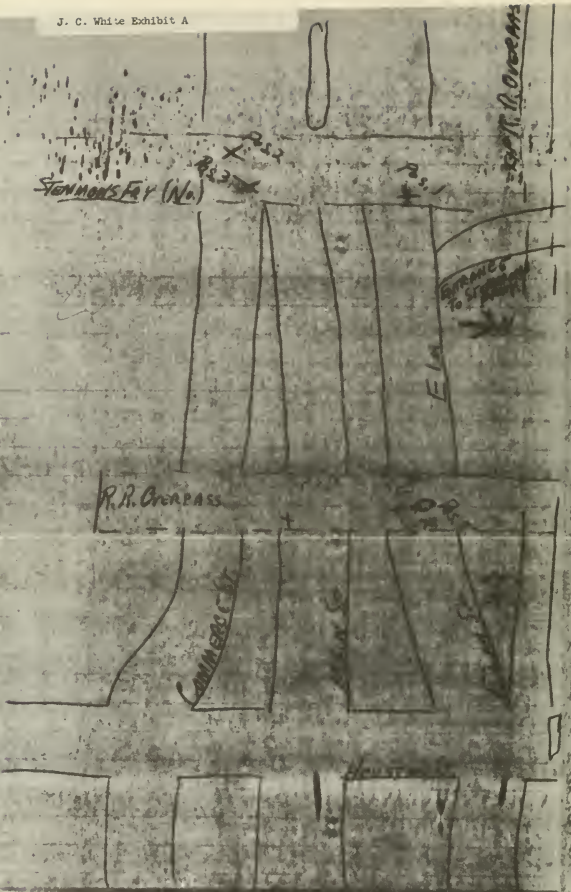 J. C. White Exhibit A
R.R. OVERPASS
Pos. 2
Pos. 3
Pos. 1
STEMMONS FWY (No.)
ENTRANCE
TO STEMMONS
ELM
R.R. OVERPASS
COMMERCE ST.
MAIN St
ELM St
HOUSTON St